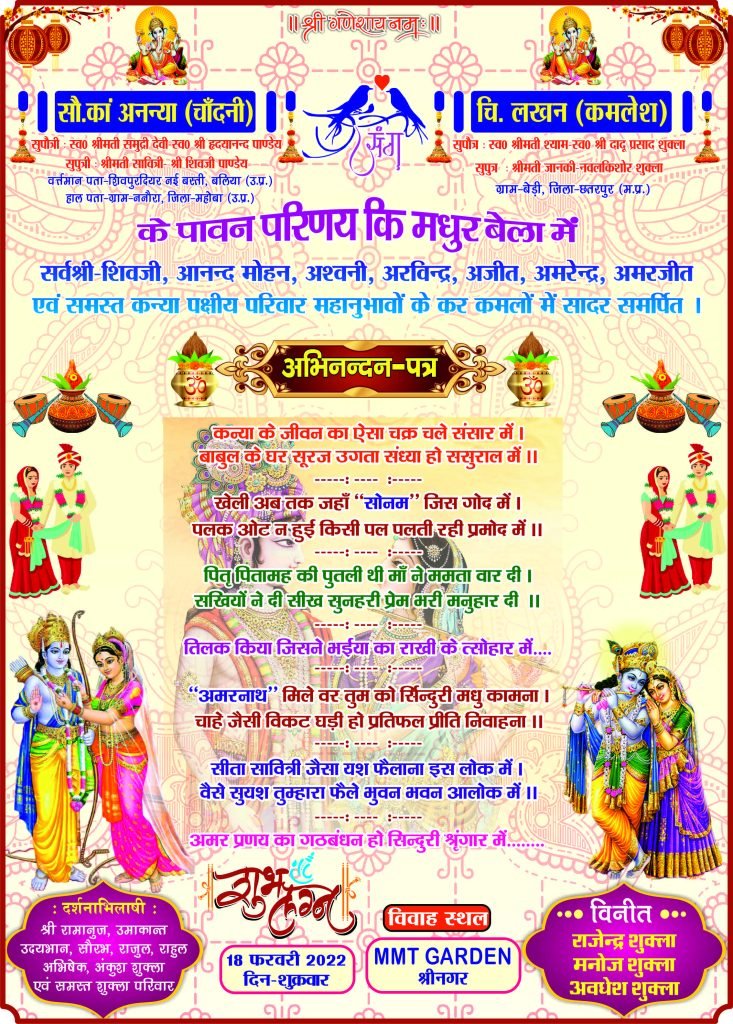 ॥ श्री गणेशाय नमः ॥
सौ.कां अनन्या (चाँदनी)
सुपौत्री : स्व0 श्रीमती समुद्री देवी-स्व0 श्री हृदयानन्द पाण्डेय
सुपुत्री : श्रीमती सावित्रि- श्री शिवजी पाण्डेय
वर्त्तमान पता-शिवपुरदियर नई बस्ती, बलिया (उ.प्र.)
हाल पता-ग्राम-ननौरा, जिला-महोबा (उ.प्र.)
संग
चि. लखन (कमलेश)
सुपौत्र : स्व0 श्रीमती श्याम-स्व0 श्री दादू प्रसाद शुक्ला
सुपुत्र : श्रीमती जानकी-नवलकिशोर शुक्ला
ग्राम-बेड़ी, जिला-छतरपुर (म.प्र.)
के पावन परिणय कि मधुर बेला में
सर्वश्री-शिवजी, आनन्द मोहन, अश्वनी, अरविन्द्र, अजीत, अमरेन्द्र, अमरजीत
एवं समस्त कन्या पक्षीय परिवार महानुभावों के कर कमलों में सादर समर्पित ।
अभिनन्दन-पत्र
ॐ
ॐ
कन्या के जीवन का ऐसा चक्र चले संसार में ।
बाबुल के घर सूरज उगता संध्या हो ससुराल में ॥
-----: ---- :-----
खेली अब तक जहाँ “सोनम” जिस गोद में ।
पलक ओट न हुई किसी पल पलती रही प्रमोद में ॥
-----: ---- :-----
पितृ पितामह की पुतली थी माँ ने ममता वार दी ।
सखियों ने दी सीख सुनहरी प्रेम भरी मनुहार दी ॥
-----: ---- :-----
तिलक किया जिसने भईया का राखी के त्सोहार में....
-----: ---- :-----
“अमरनाथ” मिले वर तुम को र्सिन्दुरी मधु कामना ।
चाहे जैसी विकट घड़ी हो प्रतिफल प्रीति निवाहना ॥
-----: ---- :-----
सीता सावित्री जैसा यश फैलाना इस लोक में ।
वैसे सुयश तुम्हारा फैले भुवन भवन आलोक में ॥
-----: ---- :-----
अमर प्रणय का गठबंधन हो सिन्दुरी श्रृंगार में........
शुभ लग्न
18 फरवरी 2022
दिन-शुक्रवार
विवाह स्थल
MMT GARDEN
श्रीनगर
: दर्शनाभिलाषी :
श्री रामानुज, उमाकान्त
उदयभान, सौरभ, राजुल, राहुल
अभिषेक, अंकुश शुक्ला
एवं समस्त शुक्ला परिवार
••• विनीत •••
राजेन्द्र शुक्ला
मनोज शुक्ला
अवधेश शुक्ला